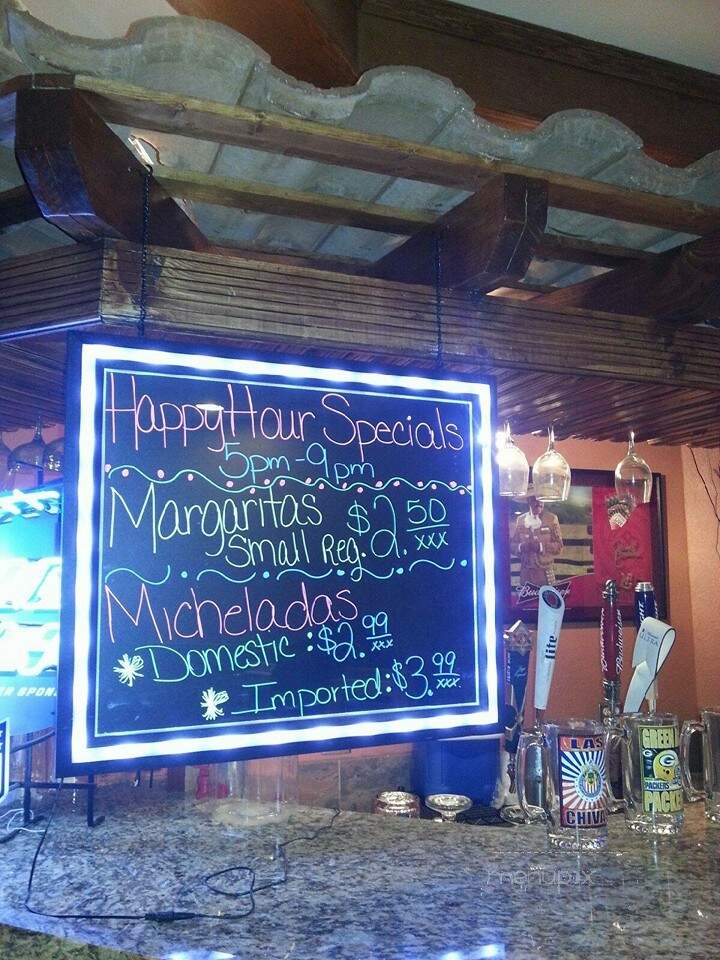 Happy Hour Specials
5pm-9pm
Margaritas $2.50
Small Reg. xxx
Micheladas
*Domestic:$2.99
xxx
*Imported:$3.99
xxx
Budweiser
lite
LAS
CHIVAS
GREEN
PACKERS
PACKE
menupix